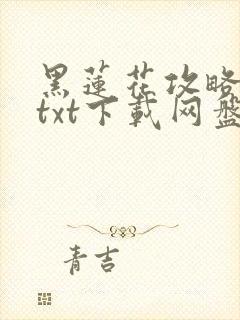 黑蓮花攻略
txt下載网盤
青吉